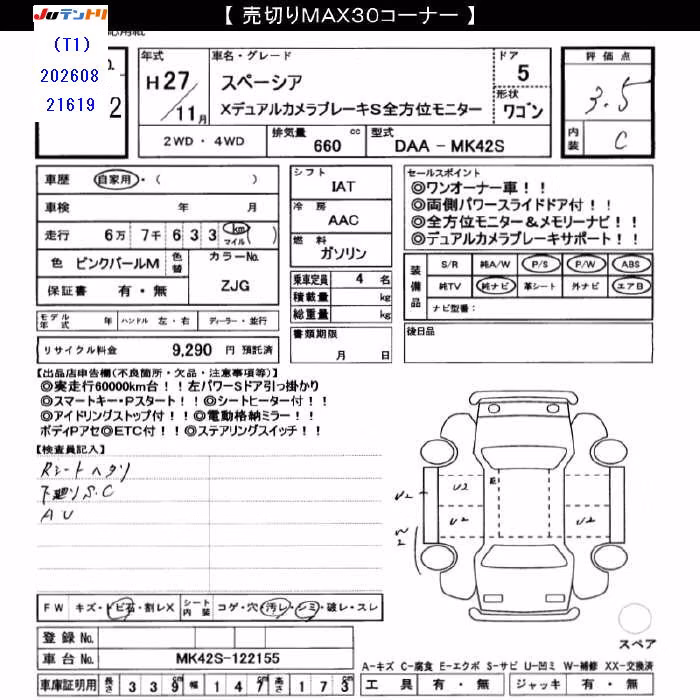 【 売切りMAX30コーナー 】
JUテントリ
(T1)
202608
21619
2
年式
H27/11月
車名・グレード
スペーシア
XデュアルカメラブレーキS全方位モニター
ドア
5
形状
ワゴン
評価点
3.5
内装
C
2WD ・ 4WD
排気量 660 cc
型式 DAA - MK42S
車歴 自家用・( )
車検 年 月
走行 6万 7千 6 3 3 km マイル ( )
色 ピンクパールM 色替
カラーNo.
ZJG
保証書 有・無
モデル年式 年 ハンドル 左・右 ディーラー・並行
リサイクル料金 9,290 円 預託済
シフト
IAT
冷房
AAC
燃料
ガソリン
乗車定員 4 名
積載量 kg
総重量 kg
書類期限
月 日
セールスポイント
◎ワンオーナー車!!
◎両側パワースライドドア付!!
◎全方位モニター&メモリーナビ!!
◎デュアルカメラブレーキサポート!!
装備品
S/R 純A/W P/S P/W ABS
純TV 純ナビ 革シート 外ナビ エアB
ナビ型番:
後日品
【出品店申告欄(不良箇所・欠品・注意事項等)】
◎実走行60000km台!!左パワーSドア引っ掛かり
◎スマートキー・Pスタート!!◎シートヒーター付!!
◎アイドリングストップ付!!◎電動格納ミラー!!
ボディPアセ◎ETC付!!◎ステアリングスイッチ!!
【検査員記入】
Rシートヘタリ
下廻りS.C
AU
U2
U2
U2
U2
W2
FW キズ・トビ石・割レX シート内装 コゲ・穴・汚レ・シミ・破レ・スレ
登録No.
車台No. MK42S-122155
車庫証明用 長さ 3 3 9 cm 幅 1 4 7 cm 高さ 1 7 3 cm
スペア
A-キズ C-腐食 E-エクボ S-サビ U-凹ミ W-補修 XX-交換済
工具 有・無 ジャッキ 有・無